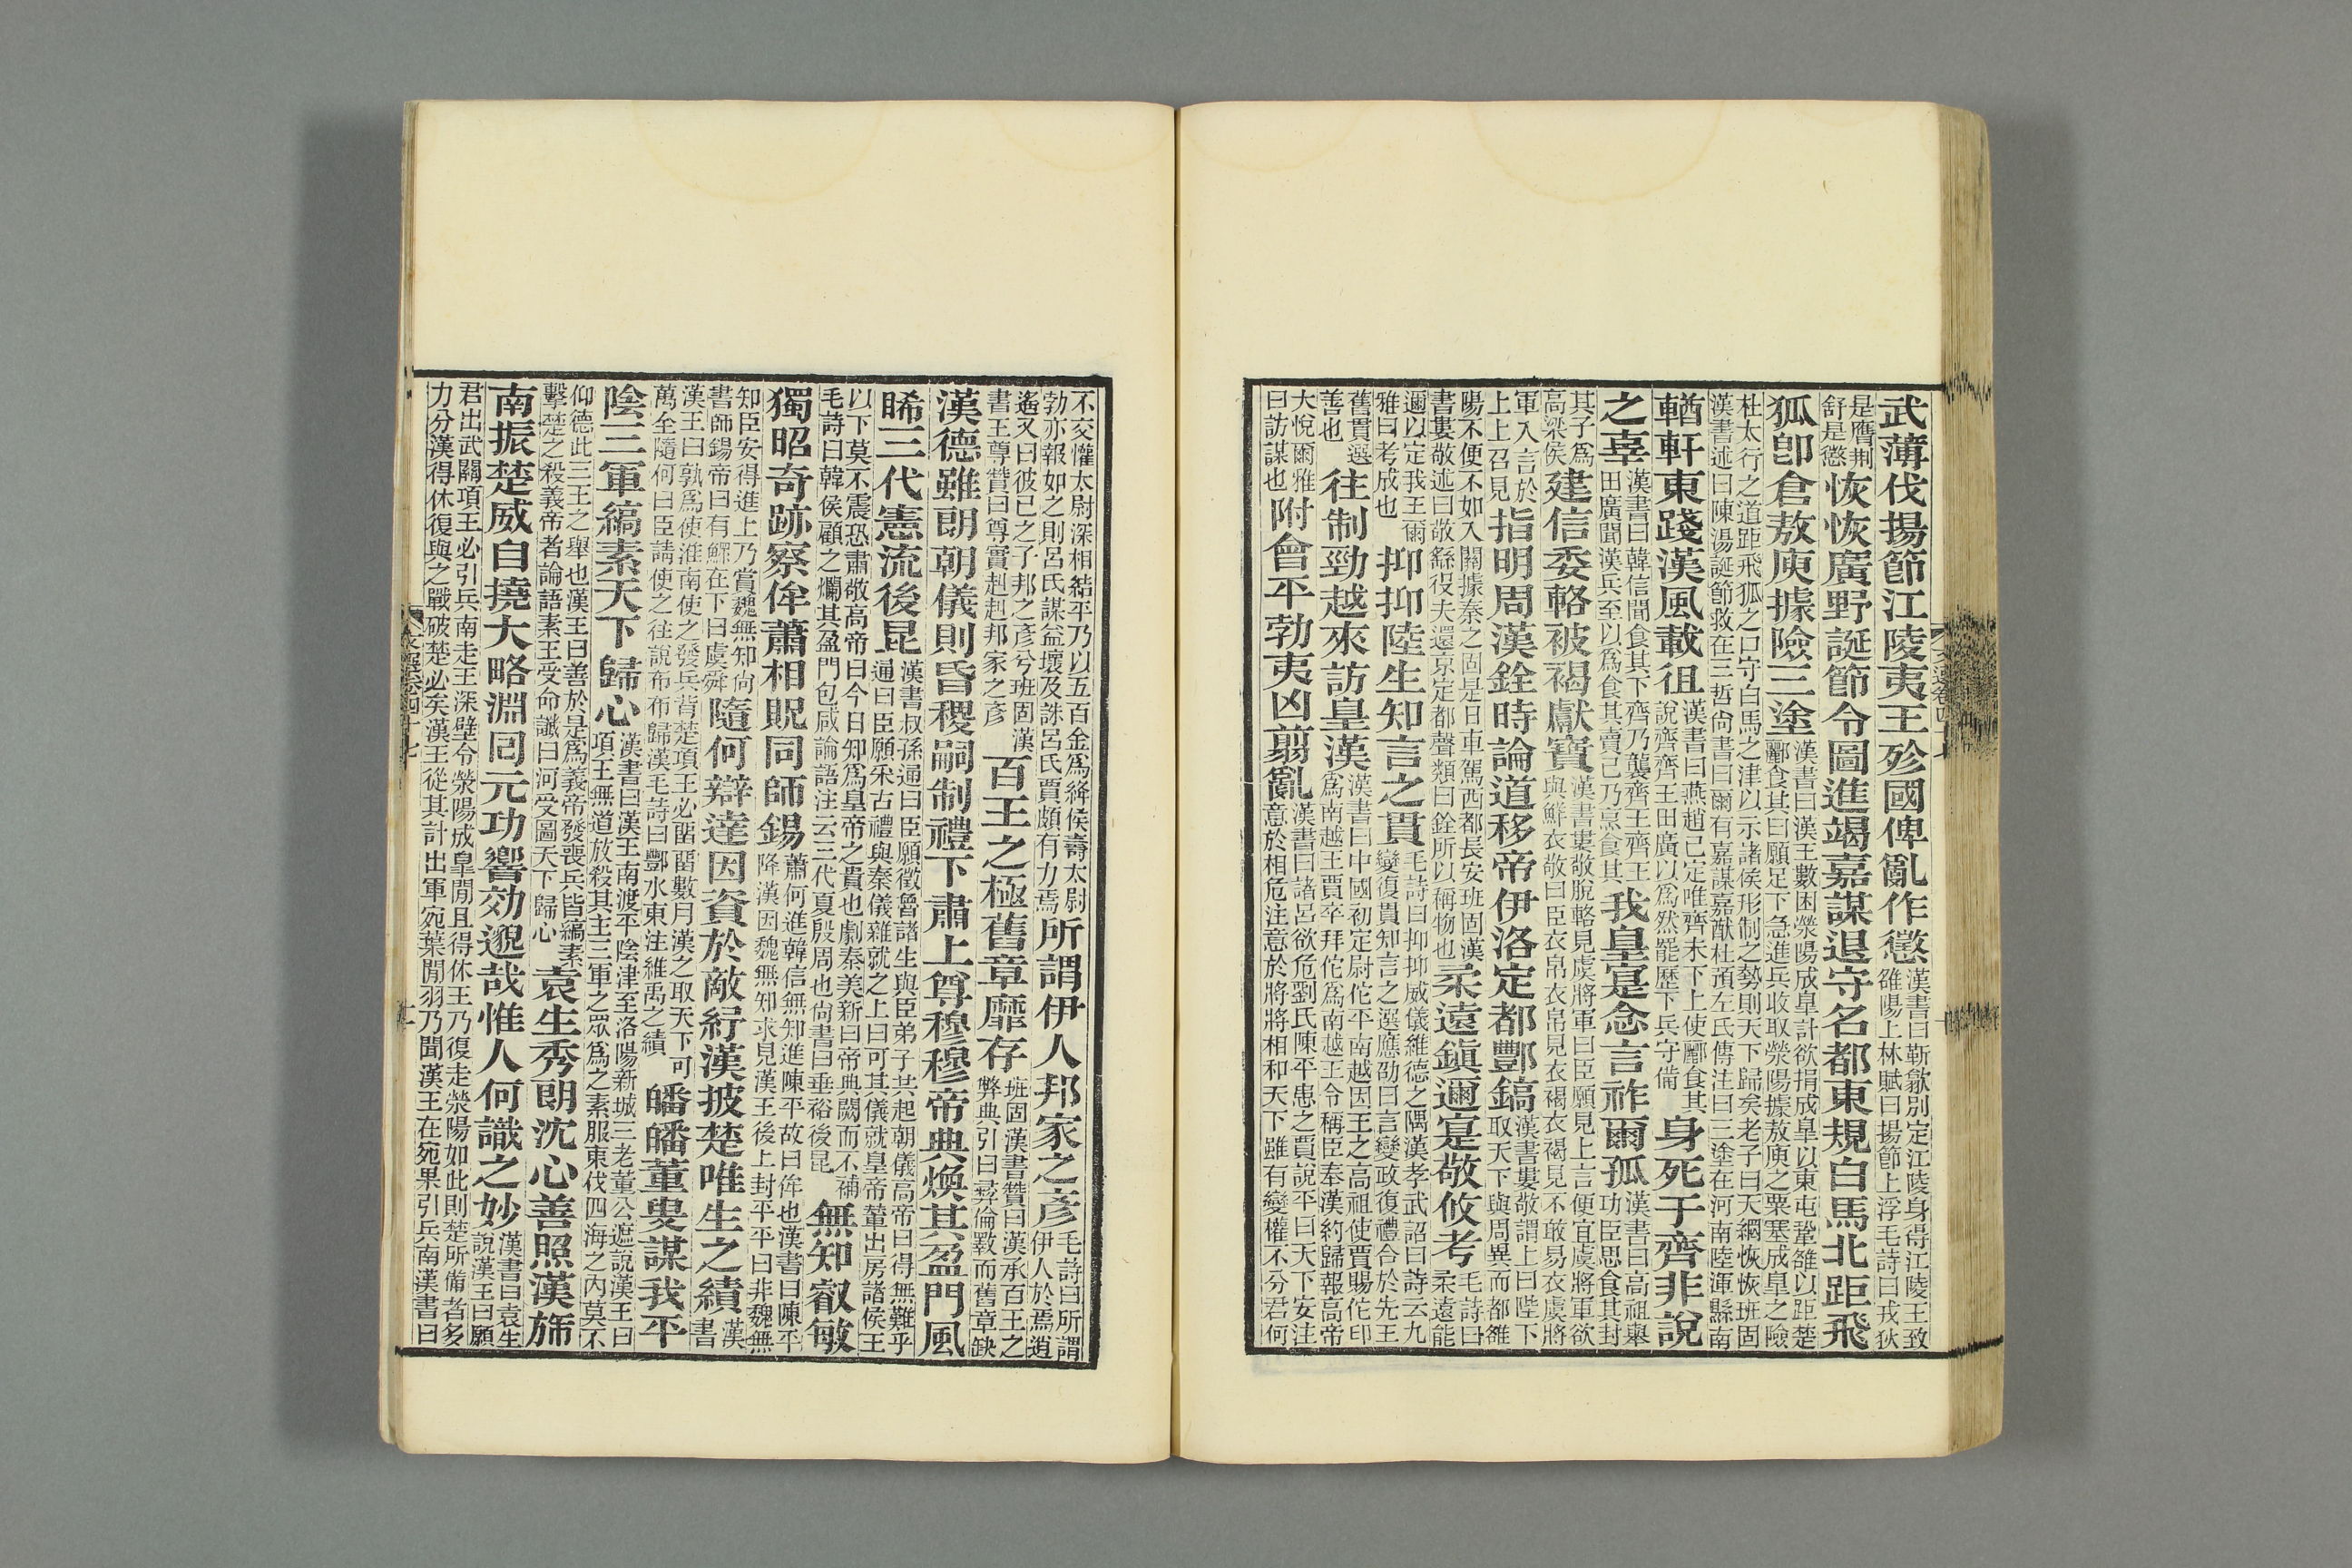 武薄伐揚節江陵夷王殄國俾亂作懲漢書曰靳歙別定江陵身得江陵王致雒陽上林賦曰揚節上浮毛詩曰戎狄
是膺荆舒是懲恢恢廣野誕節令圖進竭嘉謀退守名都東規白馬北距飛
狐卽倉敖庾據險三塗漢書曰漢王數困滎陽成皐計欲捐成皐以東屯鞏雒以距楚酈食其曰願足下急進兵收取滎陽據敖庾之粟塞成皐之險
杜太行之道距飛狐之口守白馬之津以示諸侯形制之勢則天下歸矣老子曰天網恢恢班固漢書述曰陳湯誕節救在三哲尚書曰爾有嘉謀嘉猷杜預左氏傳注曰三塗在河南陸渾縣南
輶軒東踐漢風載徂漢書曰燕趙已定唯齊未下上使酈食其說齊齊王田廣以爲然罷歷下兵守備身死于齊非說
之辜漢書曰韓信聞食其下齊乃襲齊王齊王田廣聞漢兵至以爲食其賣己乃烹食其我皇寔念言祚爾孤漢書曰高祖舉功臣思食其封
其子爲高梁侯建信委輅被褐獻寶漢書婁敬脫輅見虞將軍曰臣願見上言便宜虞將軍欲與鮮衣敬曰臣衣帛衣帛見衣褐衣褐見不敢易衣虞將
軍入言於上上召見指明周漢銓時論道移帝伊洛定都酆鎬漢書婁敬謂上曰陛下取天下與周異而都雒
陽不便不如入關據秦之固是日車駕西都長安班固漢書婁敬述曰敬繇役夫還京定都聲類曰銓所以稱物也柔遠鎭邇寔敬攸考毛詩曰柔遠能
邇以定我王爾雅曰考成也抑抑陸生知言之貫毛詩曰抑抑威儀維德之隅漢孝武詔曰詩云九變復貫知言之選應劭曰言變政復禮合於先王
舊貫選善也往制勁越來訪皇漢漢書曰中國初定尉佗平南越因王之高祖使賈賜佗印爲南越王賈卒拜佗爲南越王令稱臣奉漢約歸報高帝
大悅爾雅曰訪謀也附會平勃夷凶翦亂漢書曰諸呂欲危劉氏陳平患之賈說平曰天下安注意於相危注意於將將相和天下雖有變權不分君何
不交懽太尉深相結平乃以五百金爲絳侯壽太尉勃亦報如之則呂氏謀益壞及誅呂氏賈頗有力焉所謂伊人邦家之彥毛詩曰所謂伊人於焉逍
遙又曰彼己之子邦之彥兮班固漢書王尊贊曰尊實赳赳邦家之彥百王之極舊章靡存班固漢書贊曰漢承百王之弊典引曰彝倫斁而舊章缺
漢德雖朗朝儀則昏稷嗣制禮下肅上尊穆穆帝典煥其盈門風
睎三代憲流後昆漢書叔孫通曰臣願徵魯諸生與臣弟子共起朝儀高帝曰得無難乎通曰臣願采古禮與秦儀雜就之上曰可其儀就皇帝輦出房諸侯王
以下莫不震恐肅敬高帝曰今日知爲皇帝之貴也劇秦美新曰帝典闕而不補毛詩曰韓侯顧之爛其盈門包咸論語注云三代夏殷周也尚書曰垂裕後昆無知叡敏
獨昭奇跡察侔蕭相貺同師錫蕭何進韓信無知進陳平故曰侔也漢書曰陳平降漢因魏無知求見漢王後上封平平曰非魏無
知臣安得進上乃賞魏無知尚書師錫帝曰有鰥在下曰虞舜隨何辯達因資於敵紓漢披楚唯生之績漢書
漢王曰孰爲使淮南使之發兵背楚項王必畱畱數月漢之取天下可萬全隨何曰臣請使之往說布布歸漢毛詩曰酆水東注維禹之績皤皤董叟謀我平
陰三軍縞素天下歸心漢書曰漢王南渡平陰津至洛陽新城三老董公遮說漢王曰項王無道放殺其主三軍之眾爲之素服東伐四海之內莫不
仰德此三王之舉也漢王曰善於是爲義帝發喪兵皆縞素擊楚之殺義帝者論語素王受命讖曰河受圖天下歸心袁生秀朗沈心善照漢旆
南振楚威自撓大略淵回元功響效邈哉惟人何識之妙漢書曰袁生說漢王曰願
君出武關項王必引兵南走王深壁令滎陽成皐閒且得休王乃復走滎陽如此則楚所備者多力分漢得休復與之戰破楚必矣漢王從其計出軍宛葉閒羽乃聞漢王在宛果引兵南漢書曰
文選卷四十七